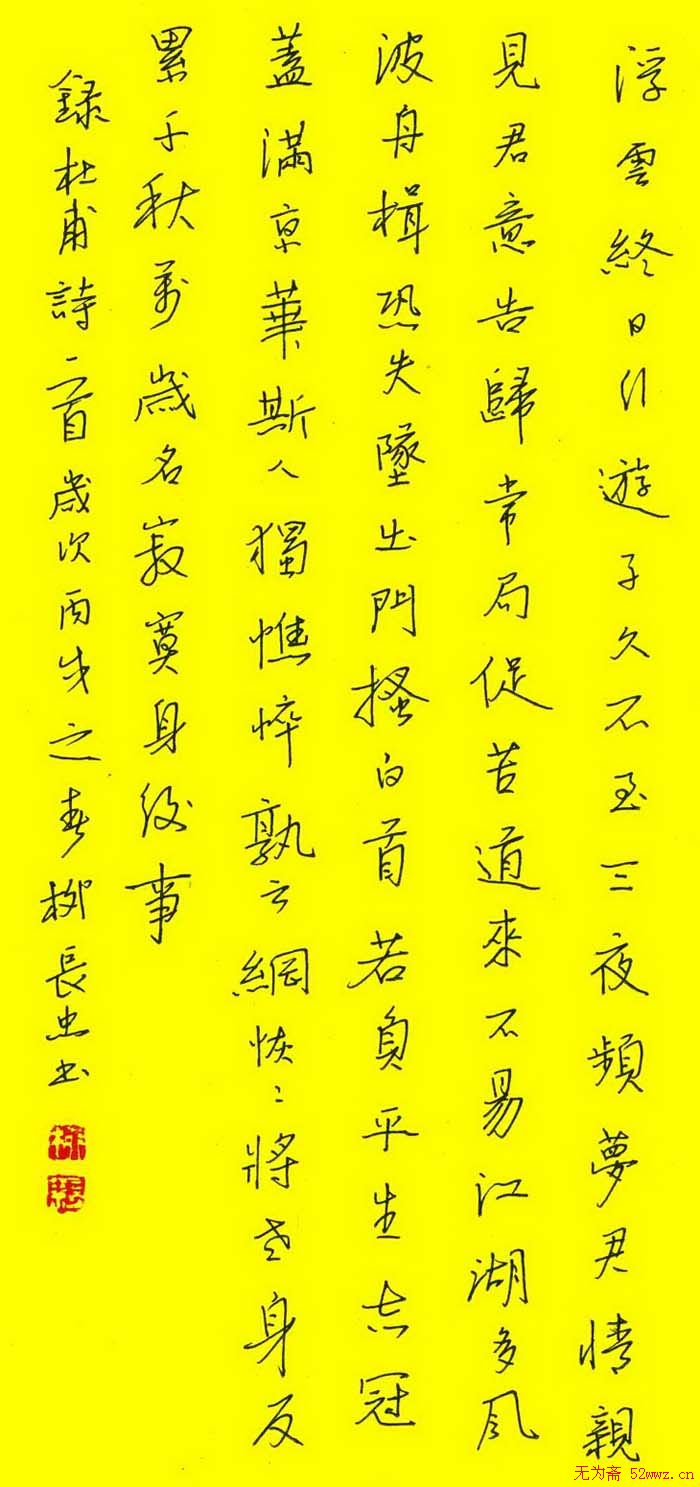 浮雲終日行遊子久不至三夜頻夢君情親
見君意告歸常局促苦道來不易江湖多風
波舟楫恐失墜出門搔白首若負平生志冠
蓋滿京華斯人獨憔悴孰云網恢〻將老身反
累千秋萬歲名寂寞身後事
錄杜甫詩一首歲次丙戌之春柳長忠書
无为斋 52wwz.cn